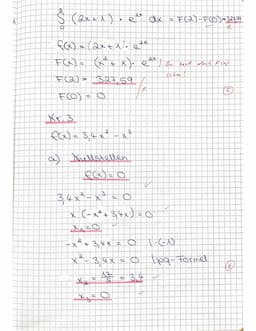 ∫₀² (2x+1) · e²ˣ dx = F(2)-F(0) = 327,59
f(x) = (2x+1) · e²ˣ
F(x) = (x²+x) · e²ˣ
F(2) = 327,59
F(0) = 0
Nr. 3
f(x) = 3,4x² - x³
a) Nullstellen
f(x) = 0
3,4x² - x³ = 0
x (-x² + 3,4x) = 0
x₁ = 0
-x² + 3,4x = 0 | · (-1)
x² - 3,4x = 0 | pq-Formel
x₂ = 17/5 = 3,4
x₃ = 0